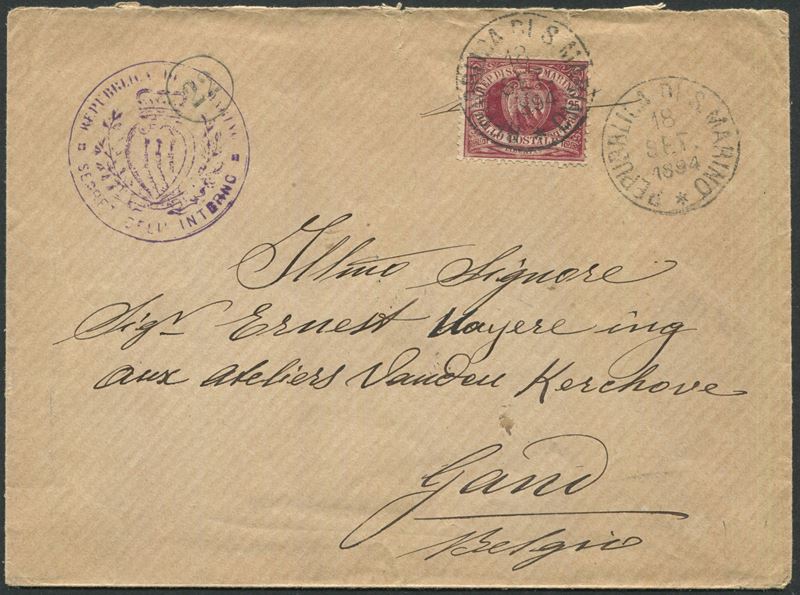 REPUBBLICA DI S. MARINO
SEGRET. DELL' INTERNO
REPUBBLICA DI S. MARINO
18
1894
POSTALE
REPUBBLICA DI S. MARINO
18
SET.
1894
Illmo Signore
Sigr Ernest Hayere ing
aux ateliers Vanden Kerchove
Gand
Belgio